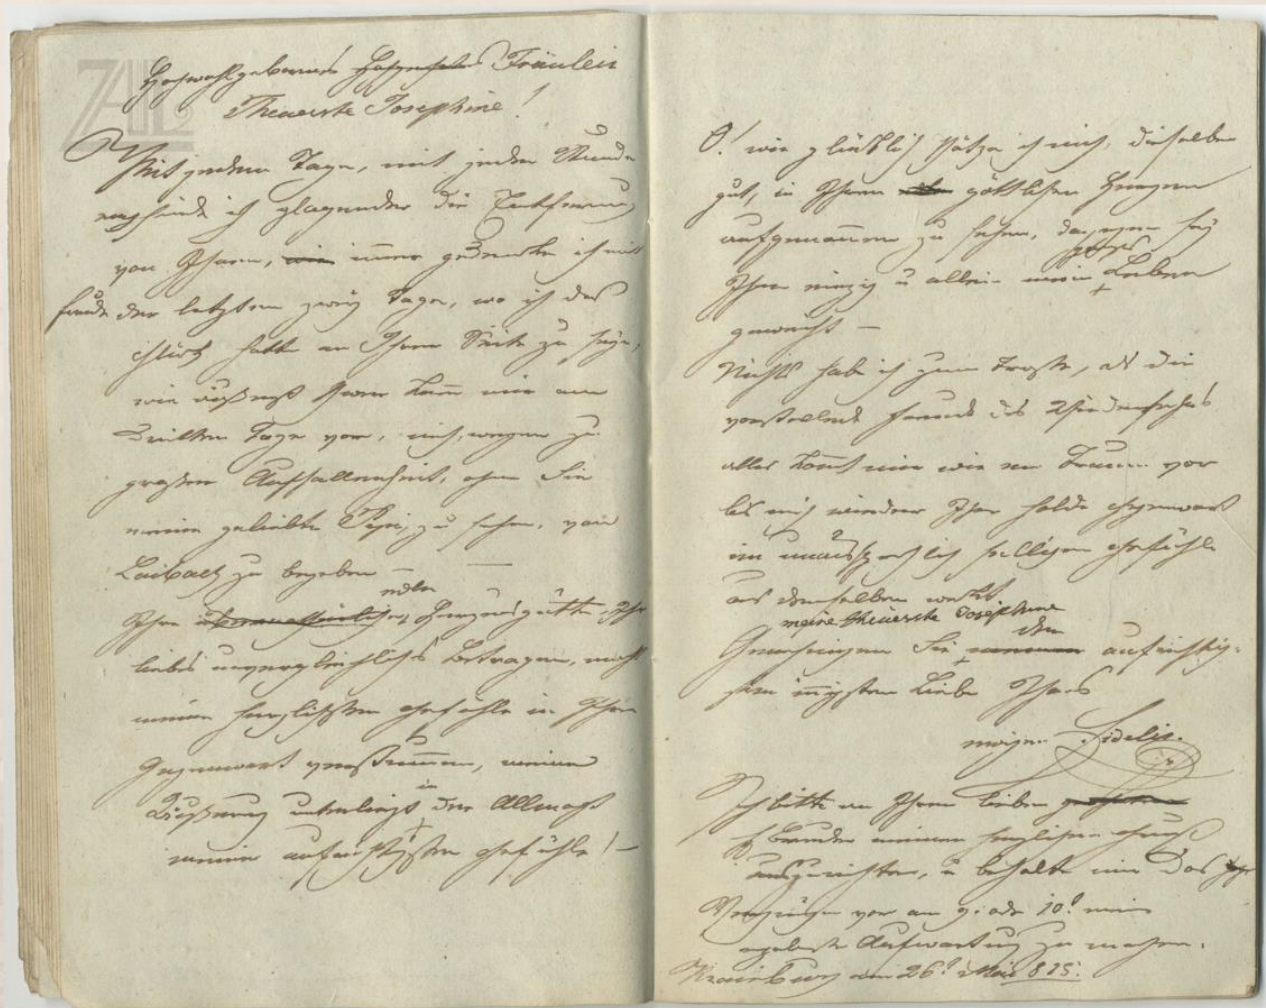 Hochwohlgebornes Fräulein
Theuerste Josephine!
Mit jedem Tage, mit jeder Stunde
empfinde ich plagender die Entfernung
von Ihnen, immer gedenke ich mit
freude der letztern zwey Tage, wo ich das
Glück hatte an Ihrer Seite zu seyn,
wie äußerst schwer kam mir am
dritten Tage vor, mich wegen zu
großer Auffallenheit, ohne Sie
meine geliebte Pepi, zu sehen, von
Laibach zu begeben —
Ihre edle Herzensgütte, Ihr
liebes unvergleichliches Betragen, macht
meine herzlichsten Gefühle in Ihrer
Gegenwart verstummen, meine
Äußerung unterliegt in der Allmacht
meiner aufrichtigsten Gefühle! —
O! wie glücklich schätze ich mich, dieselben
gut, in Ihrem göttlichen Herzen
aufgenommen zu sehen, dagegen sey
Ihnen einzig u allein mein ganzes Leben
geweiht —
Nichts hab ich zum Troste, als die
vorstellende Freude des Wiedersehns
alles kömt mir wie ein Traum vor
bis mich wieder Ihre holde Gegenwart
im unaussprechlich seelligen Gefühle
aus demselben weckt
meine theuerste Josephine
Genehmigen Sie den aufrichtig-
sten innigster Liebe Ihres
ewigen Fidelis.
Ich bitte an Ihren lieben
H Bruder meinen herzlichen Gruß
auszurichten, u behalte mir das
Vergnügen vor am 9. oder 10. meine
Aufwartung zu machen.
Krainburg am 26. Mai 815.